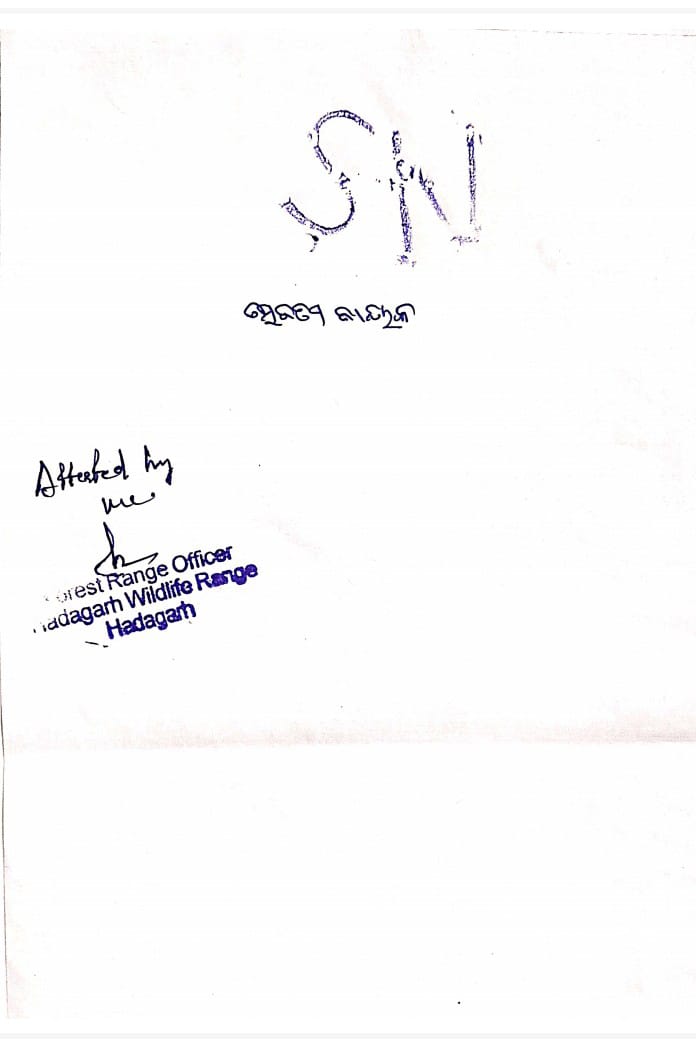 SN
ସେବତୀ ନାୟକ
Attested by
me
orest Range Officer
adagarh Wildlife Range
Hadagarh